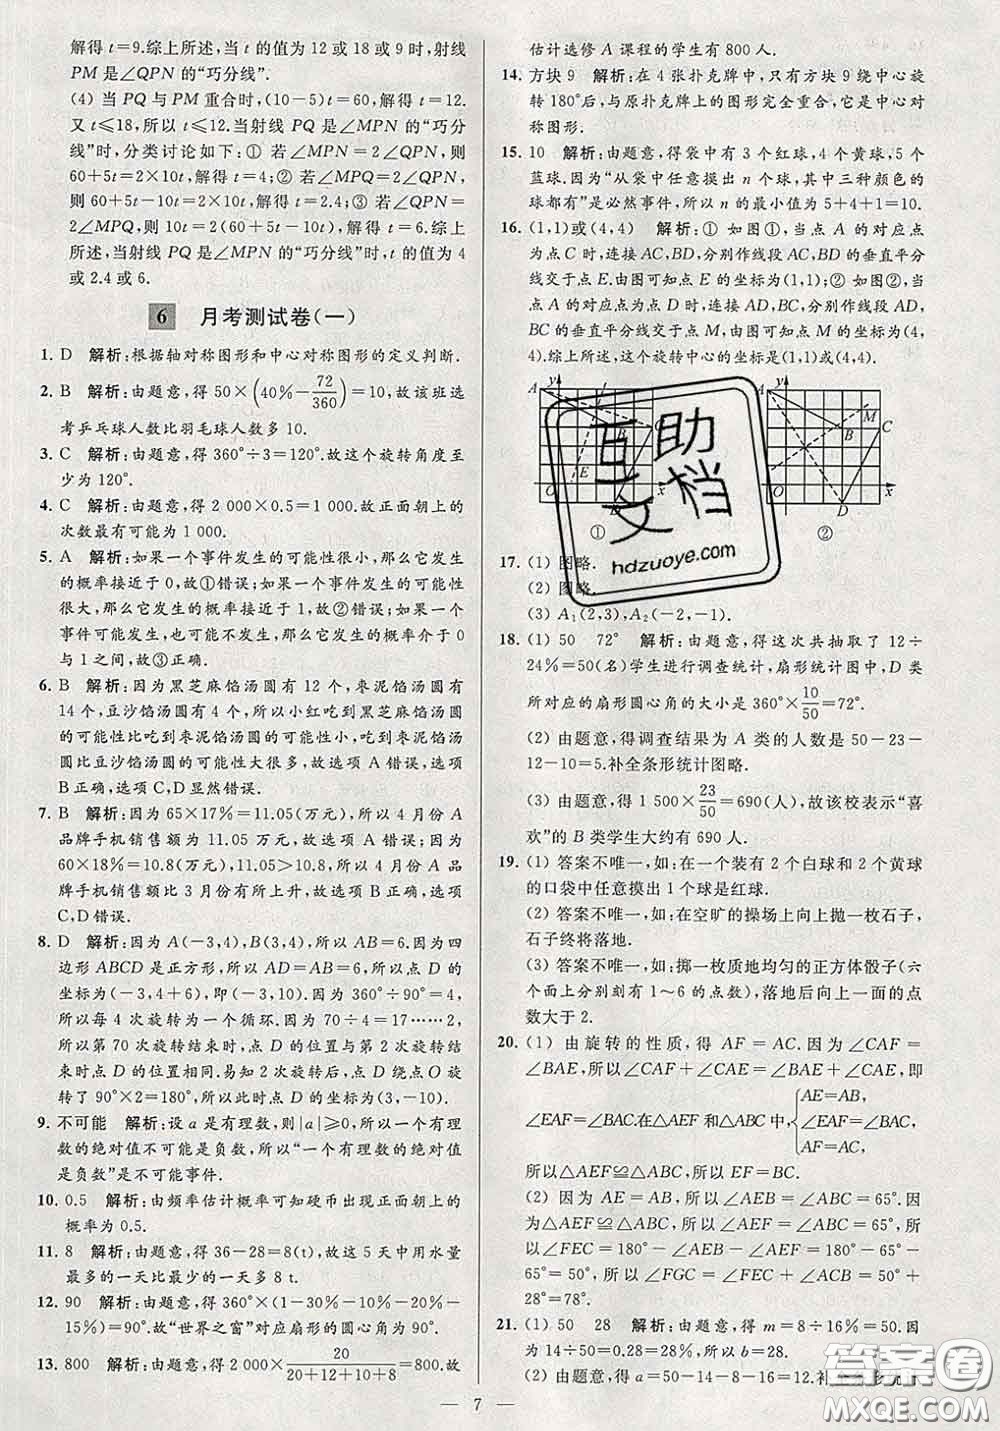 解得 t=9.综上所述,当 t 的值为 12 或 18 或 9 时,射线
PM 是∠QPN 的“巧分线”.
(4) 当 PQ 与 PM 重合时,(10-5)t=60,解得 t=12.
又 t≤18,所以 t≤12.当射线 PQ 是∠MPN 的“巧分
线”时,分类讨论如下:① 若∠MPN=2∠QPN,则
60+5t=2×10t,解得 t=4;② 若∠MPN=2∠MPQ,
则 60+5t-10t=2×10t,解得 t=2.4;③ 若∠QPN=
2∠MPQ,10t=2(60+5t-10t),解得 t=6.综上所
述,当射线 PQ 是∠MPN 的“巧分线”时,t 的值为 4
或 2.4 或 6.
6 月考测试卷(一)
1. D 解析:根据轴对称图形和中心对称图形的定义判断.
2. B 解析:由题意,得 50×(40%-72/360)=10,故该班选
考乒乓球人数比羽毛球人数多 10.
3. C 解析:由题意,得 360°÷3=120°.故这个旋转角度至
少为 120°.
4. C 解析:由题意,得 2 000×0.5=1 000.故正面朝上的
次数最有可能为 1 000.
5. A 解析:如果一个事件发生的可能性很小,那么它发生
的概率接近于 0,故①错误;如果一个事件发生的可能性
很大,那么它发生的概率接近于 1,故②错误;如果一个
事件可能发生,也可能不发生,那么它发生的概率介于 0
与 1 之间,故③正确.
6. B 解析:因为黑芝麻馅汤圆有 12 个,枣泥馅汤圆有
14 个,豆沙馅汤圆有 4 个,所以小红吃到黑芝麻馅汤圆
的可能性比吃到枣泥馅汤圆的可能性小,吃到枣泥馅汤
圆比豆沙馅汤圆的可能性大.故选项 A 错误,选项
B正确,选项C,D 显然错误.
7. B 解析:因为 65×17%=11.05(万元),所以 4 月份 A
品牌手机销售额为 11.05 万元,故选项 A 错误;因为
60×18%=10.8(万元),11.05>10.8,所以 4 月份 A 品
牌手机销售额比 3 月份有所上升,故选项 B 正确,选项
C,D错误.
8. D 解析:因为 A(-3,4),B(3,4),所以 AB=6.因为四
边形 ABCD 是正方形,所以 AD=AB=6.所以点 D 的
坐标为(-3,4+6),即(-3,10).因为 360°÷90°=4,
所以每 4 次旋转为一个循环.因为 70÷4=17……2,
所以第 70 次旋转结束时,点 D 的位置与第 2 次旋转结
束时点 D 的位置相同.易知 2 次旋转后,点 D 绕点 O 旋
转了 90°×2=180°,所以此时点 D 的坐标为(3,-10).
9. 不可能 解析:设 a 是有理数,则|a|≥0,所以一个有理
数的绝对值不可能是负数.所以“一个有理数的绝对值
是负数”是不可能事件.
10. 0.5 解析:由频率估计概率可知硬币出现正面朝上的
概率为 0.5.
11. 8 解析:由题意,得 36-28=8(t),故这 5 天中用水量
最多的一天比最少的一天多 8 t.
12. 90 解析:由题意,得 360°×(1-30%-10%-20%-
15%)=90°.故“世界之窗”对应扇形的圆心角为 90°.
13. 800 解析:由题意,得 2 000×20/(20+12+10+8)=800.故
估计选修 A 课程的学生有 800 人.
14. 方块 9 解析:在 4 张扑克牌中,只有方块 9 绕中心旋
转 180°后,与原扑克牌上的图形完全重合,它是中心对
称图形.
15. 10 解析:由题意,得袋中有 3 个红球,4 个黄球,5 个
蓝球.因为“从袋中任意摸出 n 个球,其中三种颜色的
球都有”是必然事件,所以 n 的最小值为 5+4+1=10.
16. (1,1)或(4,4) 解析:① 如图①,当点 A 的对应点
为点 C 时,连接 AC,BD,分别作线段 AC,BD 的垂直平分
线交于点 E.由图可知点 E 的坐标为(1,1);② 如图②,当
点 A 的对应点为点 D 时,连接 AD,BC,分别作线段 AD,
BC 的垂直平分线交于点 M,由图可知点 M 的坐标为(4,
4).综上所述,这个旋转中心的坐标是(1,1)或(4,4).
①
②
17. (1) 图略.
(2) 图略.
(3) A₁(2,3),A₂(-2,-1).
18. (1) 50 72° 解析:由题意,得这次共抽取了 12÷
24%=50(名)学生进行调查统计,扇形统计图中,D 类
所对应的扇形圆心角的大小是 360°×10/50=72°.
(2) 由题意,得调查结果为 A 类的人数是 50-23-
12-10=5.补全条形统计图略.
(3) 由题意,得 1 500×23/50=690(人),故该校表示“喜
欢”的 B 类学生大约有 690 人.
19. (1) 答案不唯一,如:在一个装有 2 个白球和 2 个黄球
的口袋中任意摸出 1 个球是红球.
(2) 答案不唯一,如:在空旷的操场上向上抛一枚石子,
石子终将落地.
(3) 答案不唯一,如:掷一枚质地均匀的正方体骰子(六
个面上分别刻有 1~6 的点数),落地后向上一面的点
数大于 2.
20. (1) 由旋转的性质,得 AF=AC.因为∠CAF=
∠BAE,所以∠CAF+∠CAE=∠BAE+∠CAE,即
∠EAF=∠BAC.在△AEF 和△ABC 中,{AE=AB, ∠EAF=∠BAC, AF=AC,
所以△AEF≌△ABC.所以 EF=BC.
(2) 因为 AE=AB,所以∠AEB=∠ABC=65°.因
为△AEF≌△ABC,所以∠AEF=∠ABC=65°.所以
∠FEC=180°-∠AEB-∠AEF=180°-65°-
65°=50°.所以∠FGC=∠FEC+∠ACB=50°+
28°=78°.
21. (1) 50 28 解析:由题意,得 m=8÷16%=50.因
为 14÷50=0.28=28%,所以 b=28.
(2) 由题意,得 a=50-14-8-16=12.补全
互助
文档
hdzuoye.com
答案圈
MXQE.COM
— 7 —